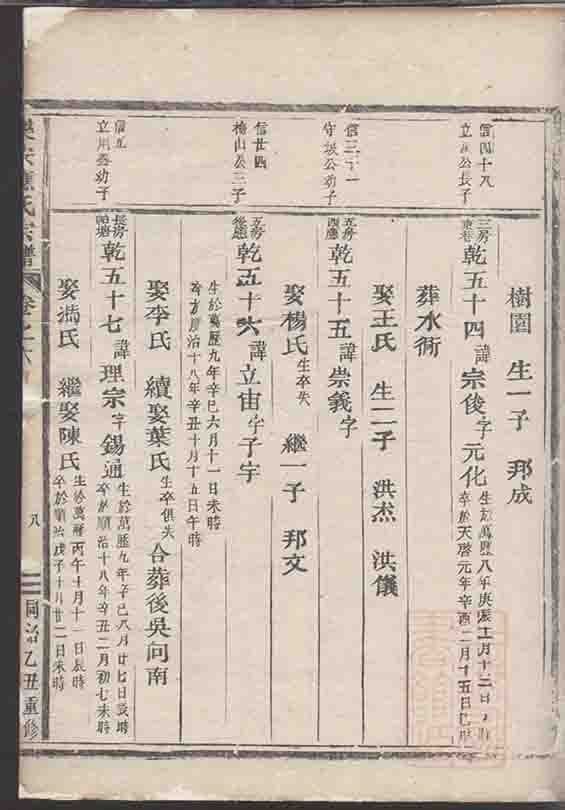 樹園 生一子 邦成
信四十八
立 公長子
三房
東巷
乾五十四 諱宗俊 字元化
生於萬歷八年庚辰 月十二日 時
卒於天啓元年辛酉二月十五日巳時
葬水衕
娶王氏 生二子 洪杰 洪儀
信三十一
守 公幼子
五房
西應
乾五十五 諱崇義 字
娶楊氏 生卒失 繼一子 邦文
信廿四
公三子
五房
後應
乾五十六 諱立宙 字子宇
生於萬歷九年辛巳六月十一日未時
卒於順治十八年辛丑十月十五日午時
娶李氏 續娶葉氏 生卒俱失 合葬後吳向南
信九
立川公幼子
長房
塘
乾五十七 諱理宗 字錫通
生於萬歷九年辛巳八月廿七日 時
卒於順治十八年辛丑二月初七未時
娶 氏 繼娶陳氏
生於萬曆丙午十月十一日辰時
卒於順治戊子十月廿二日未時
氏宗譜 卷之六 八 同治乙丑重修